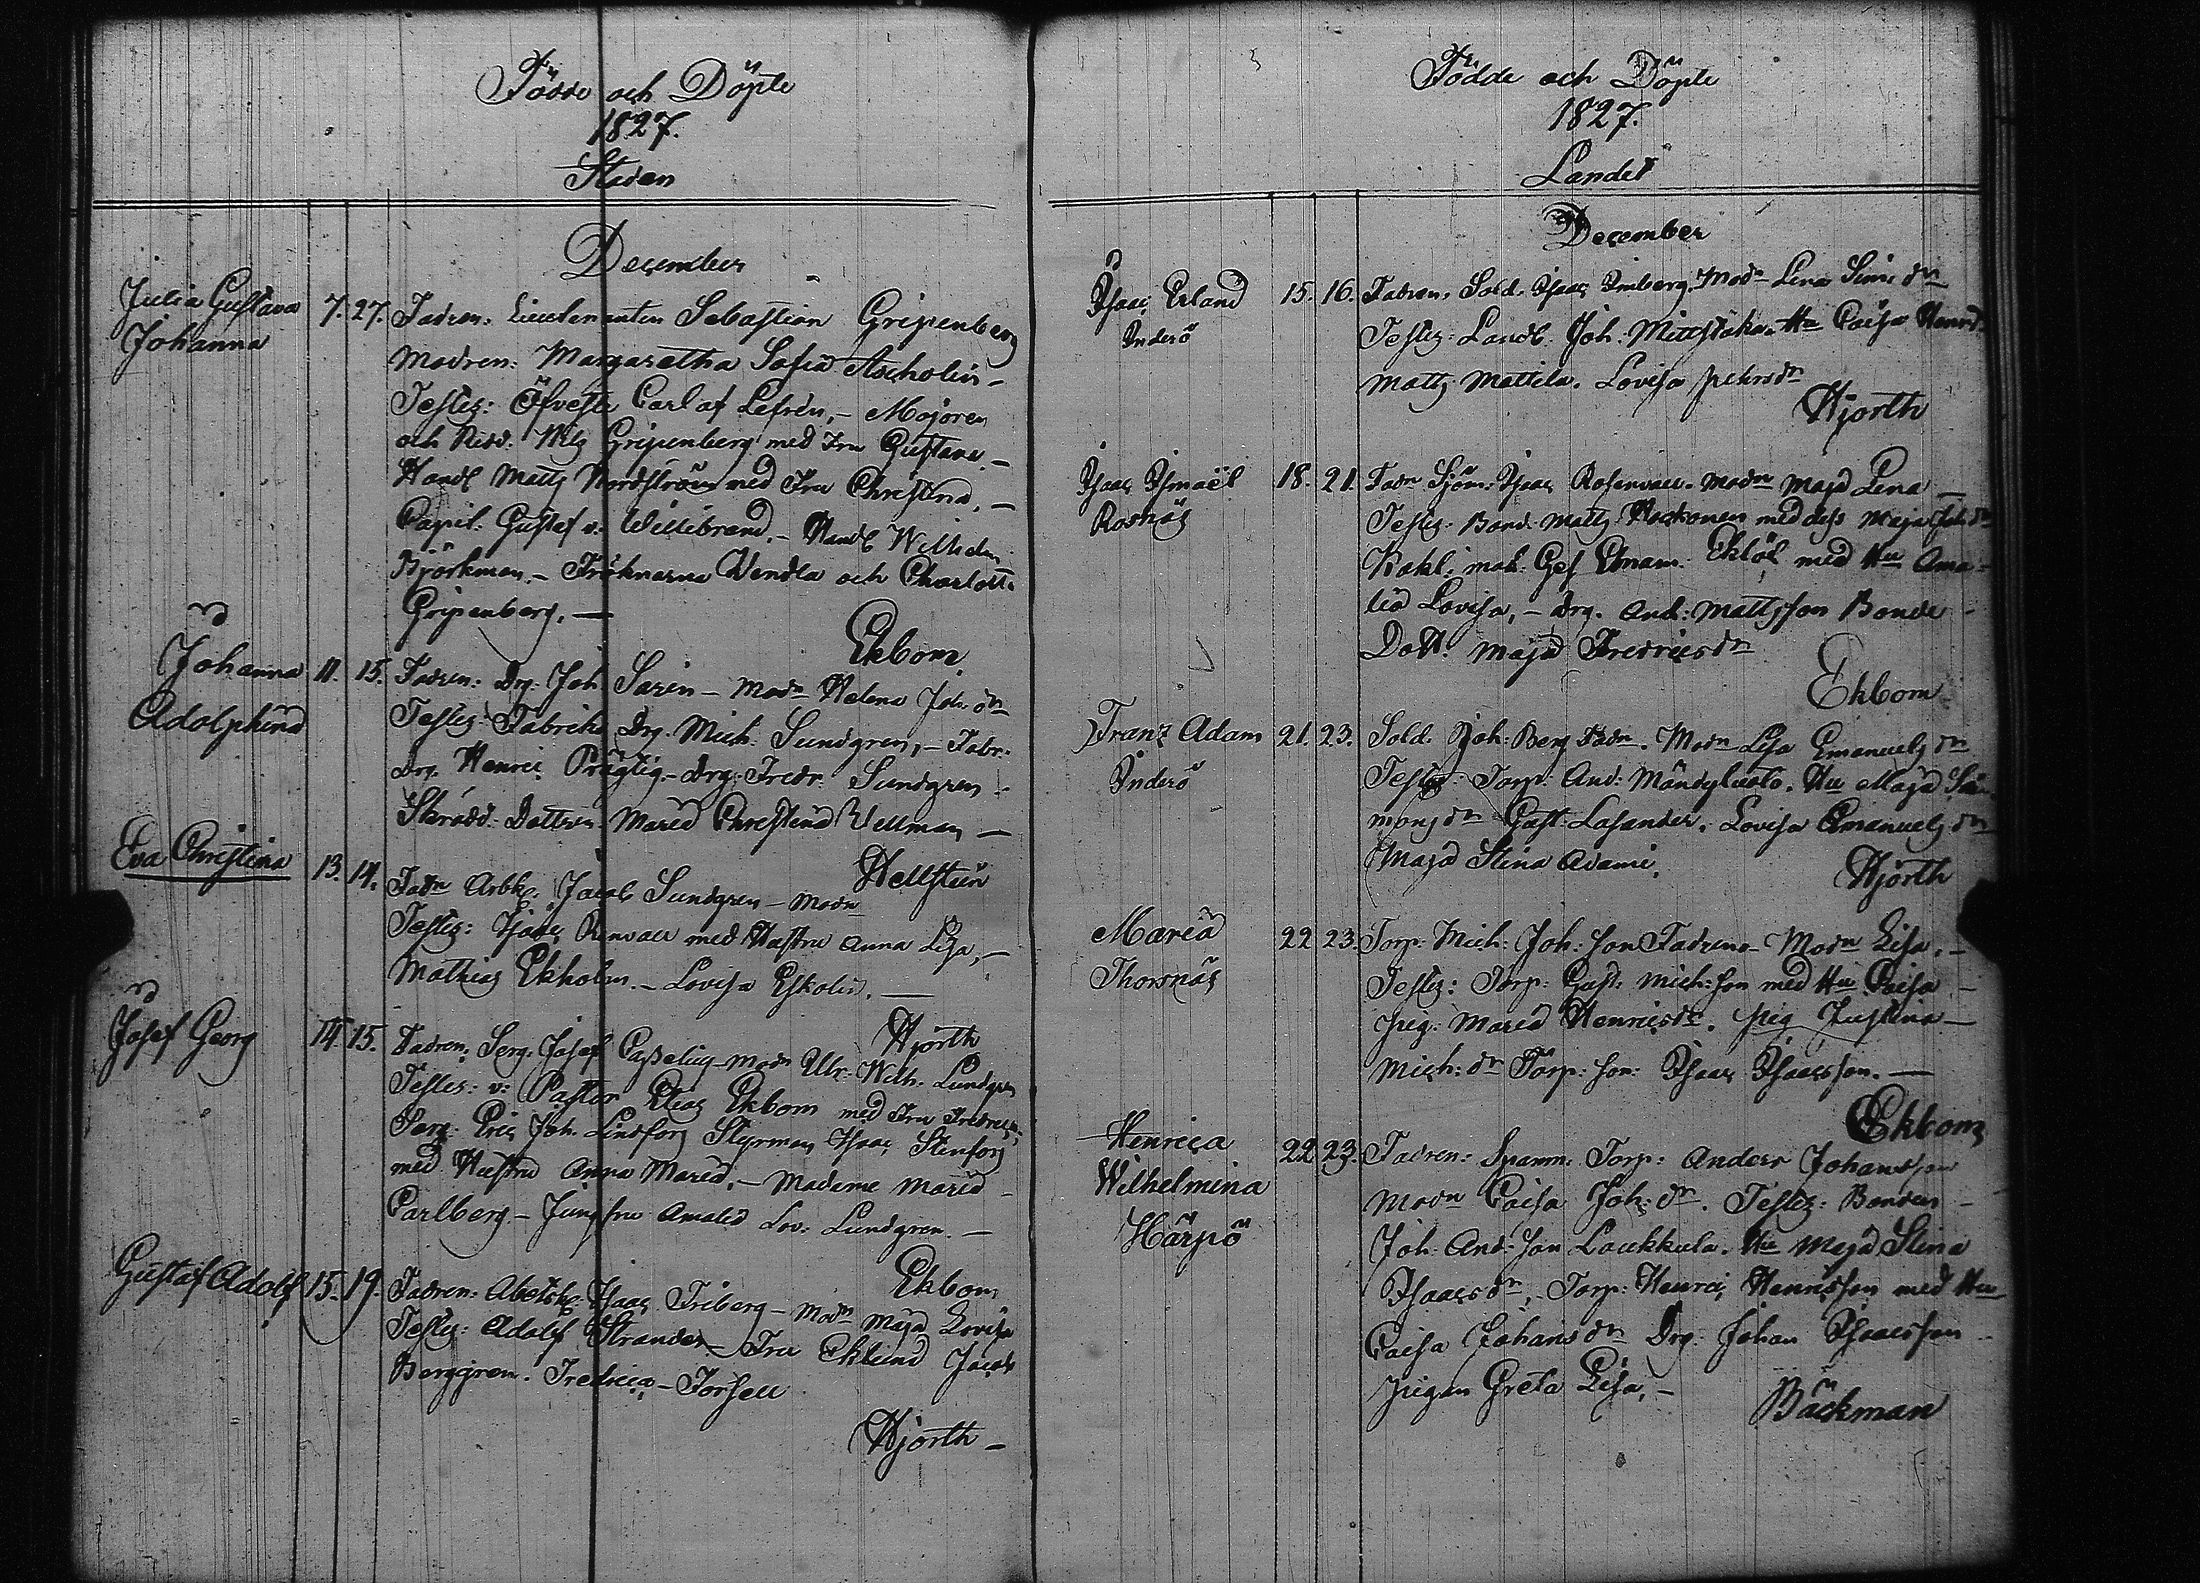 Födde och Döpte
1827.
Staden
December
Julia Gustava
Johanna
7. 27. Fadren: Lieutenanten Sebastian Gripenberg
Modren: Margaretha Sofia Ascholin –
Testes: Öfverste Carl af Lefrén, – Majoren
och Ridd. Nils Gripenberg med Fru Gustava –
Handl Matts Nordström med Fru Christina, –
Capit. Gustaf v. Willebrand. – Handl Wilhelm
Björkman – Fröknarna Vendla och Charlott.
Gripenberg. –
Ekbom
Johanna
Adolphina
11. 15. Fadren: Drg. Joh Sarin – Modn Helena Joh. dn
Testes: Fabriks Drg. Mich. Sundgren, – Fabr.
Drg. Henric Prägtig – Drg. Fredr. Sundgren –
Skrädd. Dottren Maria Christina Wellman –
Hellsteen
Eva Christina
13. 14. Fadn Arbk. Jacob Sundgren – Modn
Testes: Isaac Renvall med Hustru Anna Lisa, –
Mathias Ekholm. – Lovisa Eskolin. –
Hjorth
Josef Georg
14. 15. Fadren: Serg. Josef Casselius – Modn Ulr. Wilh. Lundgren
Testes: v. Pastor Elias Ekbom med Fru Fredrica,
Serg. Eric Joh. Lindfors Styrman Isaac Stenfors
med Hustru Anna Maria. – Madame Maria
Carlberg – Jungfru Amalia Lov. Lundgren. –
Ekbom
Gustaf Adolf
15. 19. Fadren: Abetsk. Isaac Friberg – Modn Maja Lovisa
Testes: Adolf Strander – Fru Eklund Jacob
Berggren. Fredrica – Forsell
Hjorth –
Födde och Döpte
1827.
Landet
December
Isaac Erland
Inderö
15. 16. Fadren, Sold. Isaac Imberg. Modn Lena Sim. dn
Testes: Landb. Joh. Mittstaka. Hu Caisa Henrd.
Matts Mattila. Lovisa Pehrsdn
Hjorth
Isaac Ismaël
Rosnäs
18. 21. Fadn Sjöm. Isaac Rosenvall. Modn Maja Lena –
Testes: Bond. Matts Hackonen med dess Maja Joh. dn
Kakl. mak. Ges Eman. Eklöf med Hu Ama-
lia Lovisa, – Drg. And: Mattsson Bonde –
Dott. Maja Fredricsdn
Ekbom
Franz Adam
Inderö
21. 23. Sold. Joh. Berg Fadn. Modn Lisa Emanuels dn
Testes: Torp. And: Mändyluoto. Hu Maja Sim-
mons dn Gust. Lasander. Lovisa Emanuels dn
Maja Stina Adami.
Hjorth
Maria
Thorsnäs
22 23. Torp. Mich: Joh: Son Fadren – Modn Lisa. –
Testes: Torp. Gust. Mich: Son med Hu Caisa –
Pig. Maria Henricsdr. Pig Justina –
Mich: dn Torp: Son: Isaac Isaacsson. –
Ekbom
Henrica
Wilhelmina
Härpö
22 23. Fadren: Spannm. Torp: Anders Johansson
Modn Caisa Joh. dn. Testes: Bonden –
Joh. And: Son Laukkula. Hu Maja Stina
Isaacsdn, Torp. Henric Henricsson med Hu
Caisa Johans dn Drg. Johan Isaacsson –
Pigan Greta Lisa. –
Bäckman